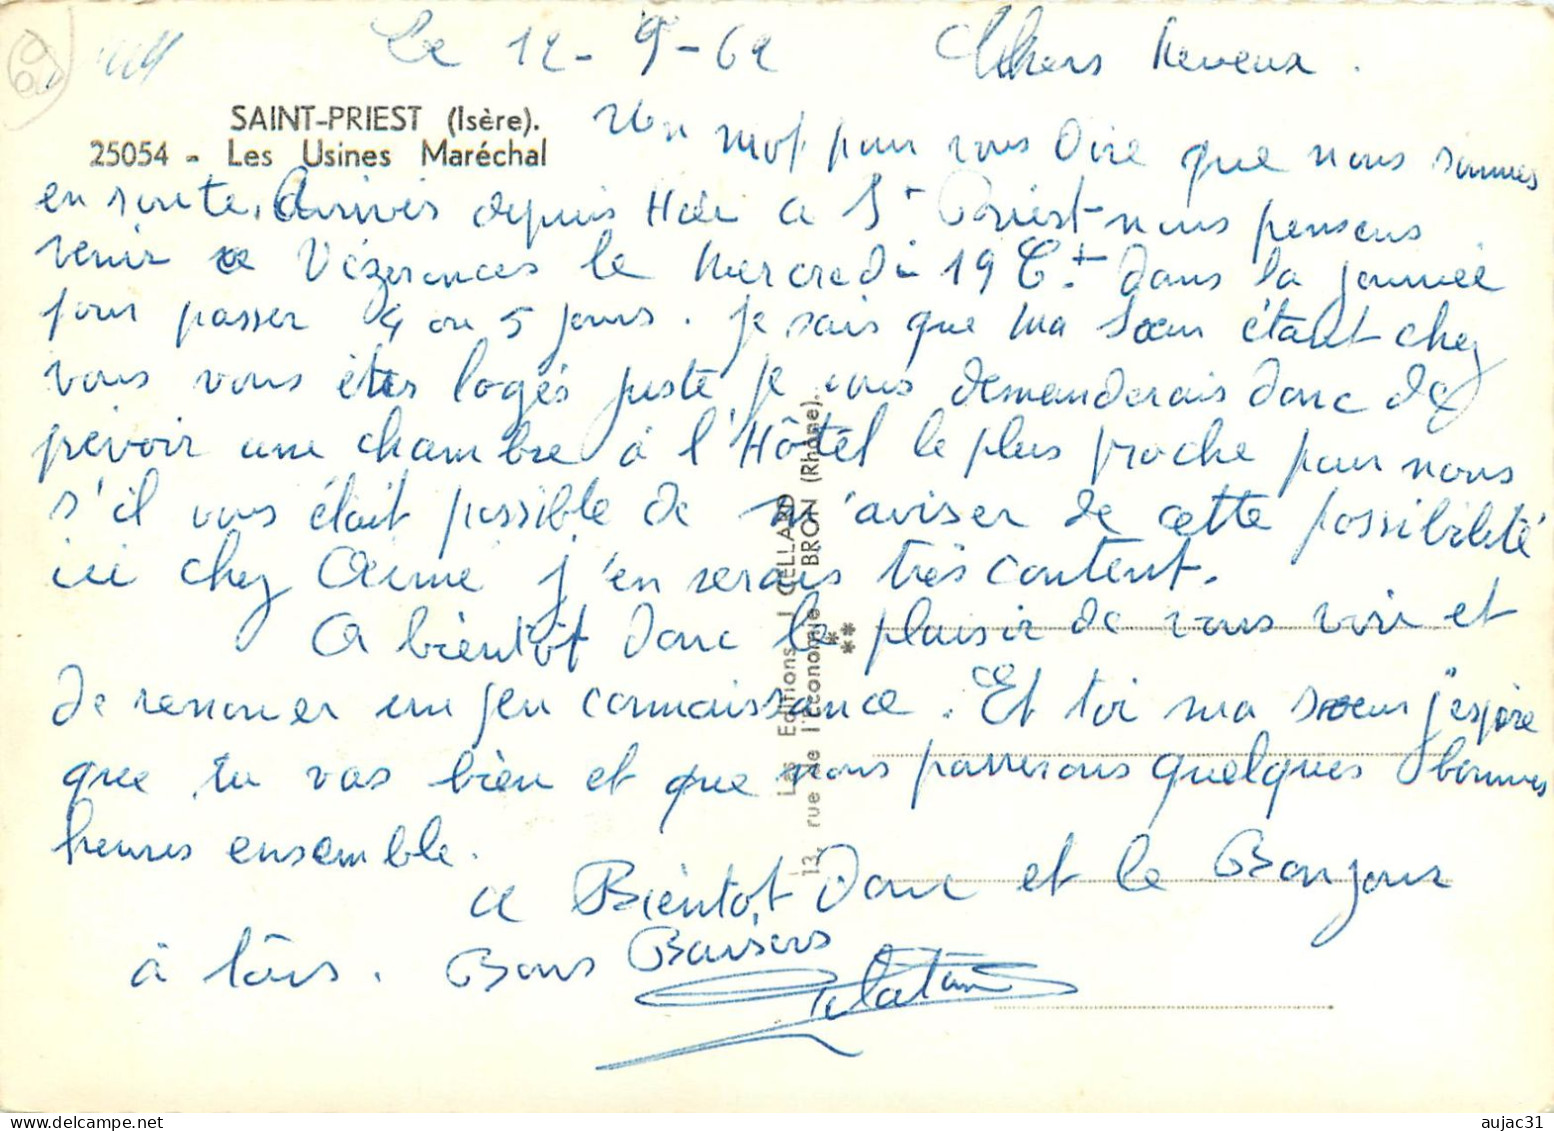 Le 12-9-62 Chers Neveux.
SAINT-PRIEST (Isère).
25054 - Les Usines Maréchal
Un mot pour vous dire que nous sommes
en route. Arrivés depuis Hier a St Priest nous pensons
venir a Vézeronces le Mercredi 19 Ct dans la journée
pour passer 4 ou 5 jours. Je sais que ma Sœur étant chez
vous vous êtes logés juste je vous demanderais donc de
prévoir une chambre à l'Hôtel le plus proche pour nous
s'il vous était possible de m'aviser de cette possibilité
ici chez Aimé j'en serais très content.
A bientôt donc le plaisir de vous voir et
de renouer un peu connaissance. Et toi ma sœur j'espère
que tu vas bien et que nous passerons quelques bonnes
heures ensemble.
a Bientôt Donc et le Bonjour
à tous. Bons Baisers
Les Editions J. CELLARD
13, rue de l'Economie BRON (Rhône).
aujac31